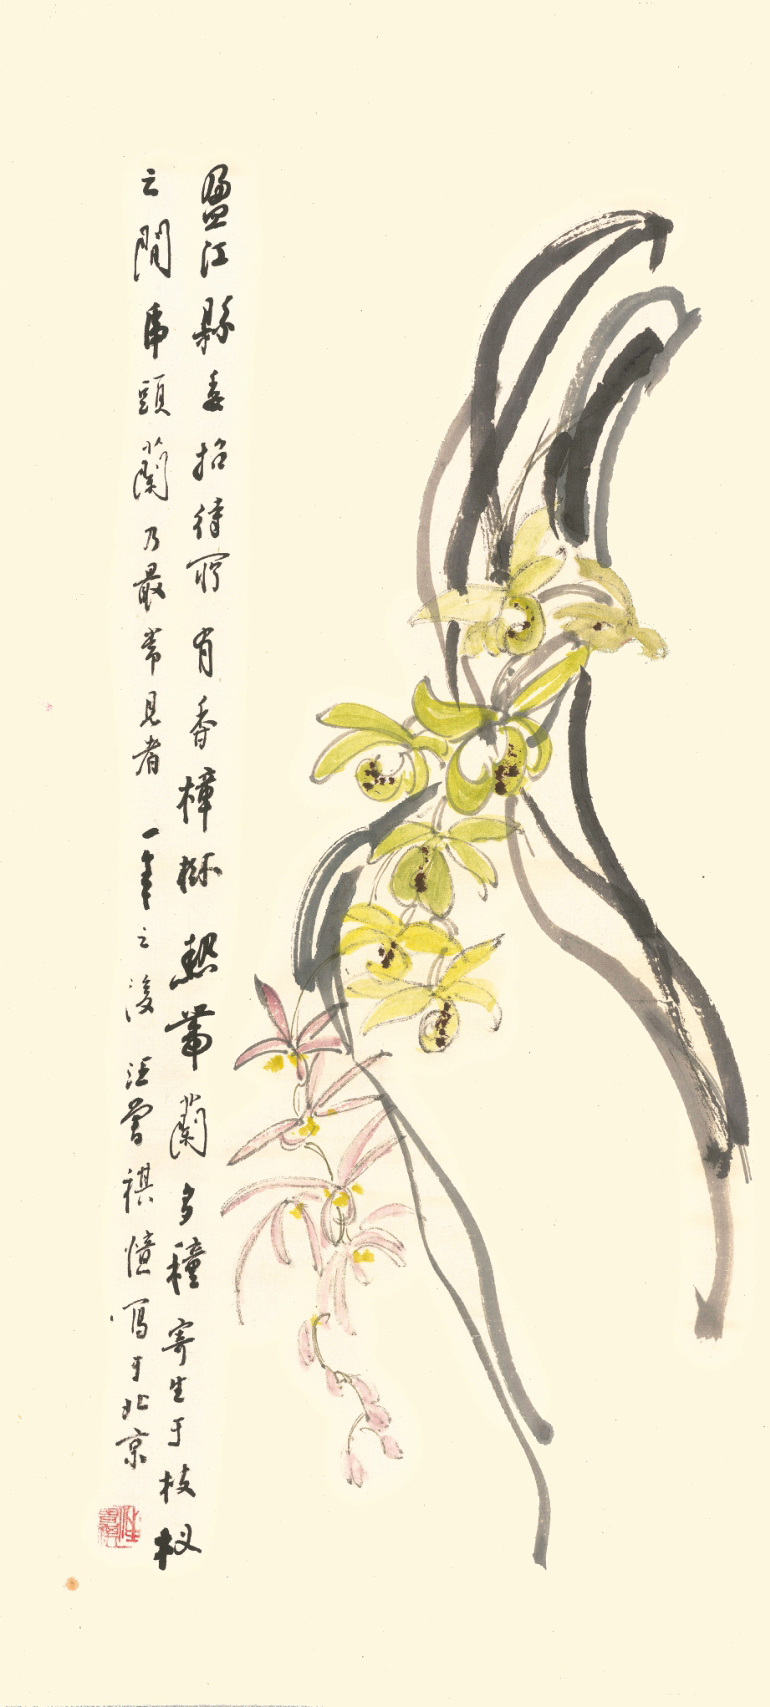 盈江縣委招待所有香樟樹熱帶蘭多種寄生于枝杈
之間虎頭蘭乃最常見者 一年之後 汪曾祺憶寫于北京